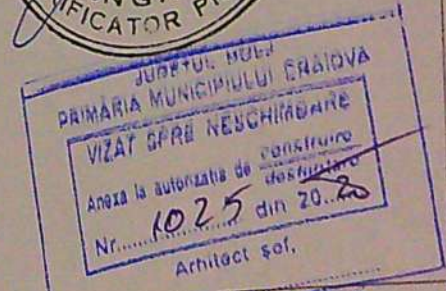 IFICATOR P
JUDEȚUL DOLJ
PRIMĂRIA MUNICIPIULUI CRAIOVA
VIZAT SPRE NESCHIMBARE
Anexa la autorizatia de construire
desfiintare
Nr......1025 din 20..20
Arhitect șef,